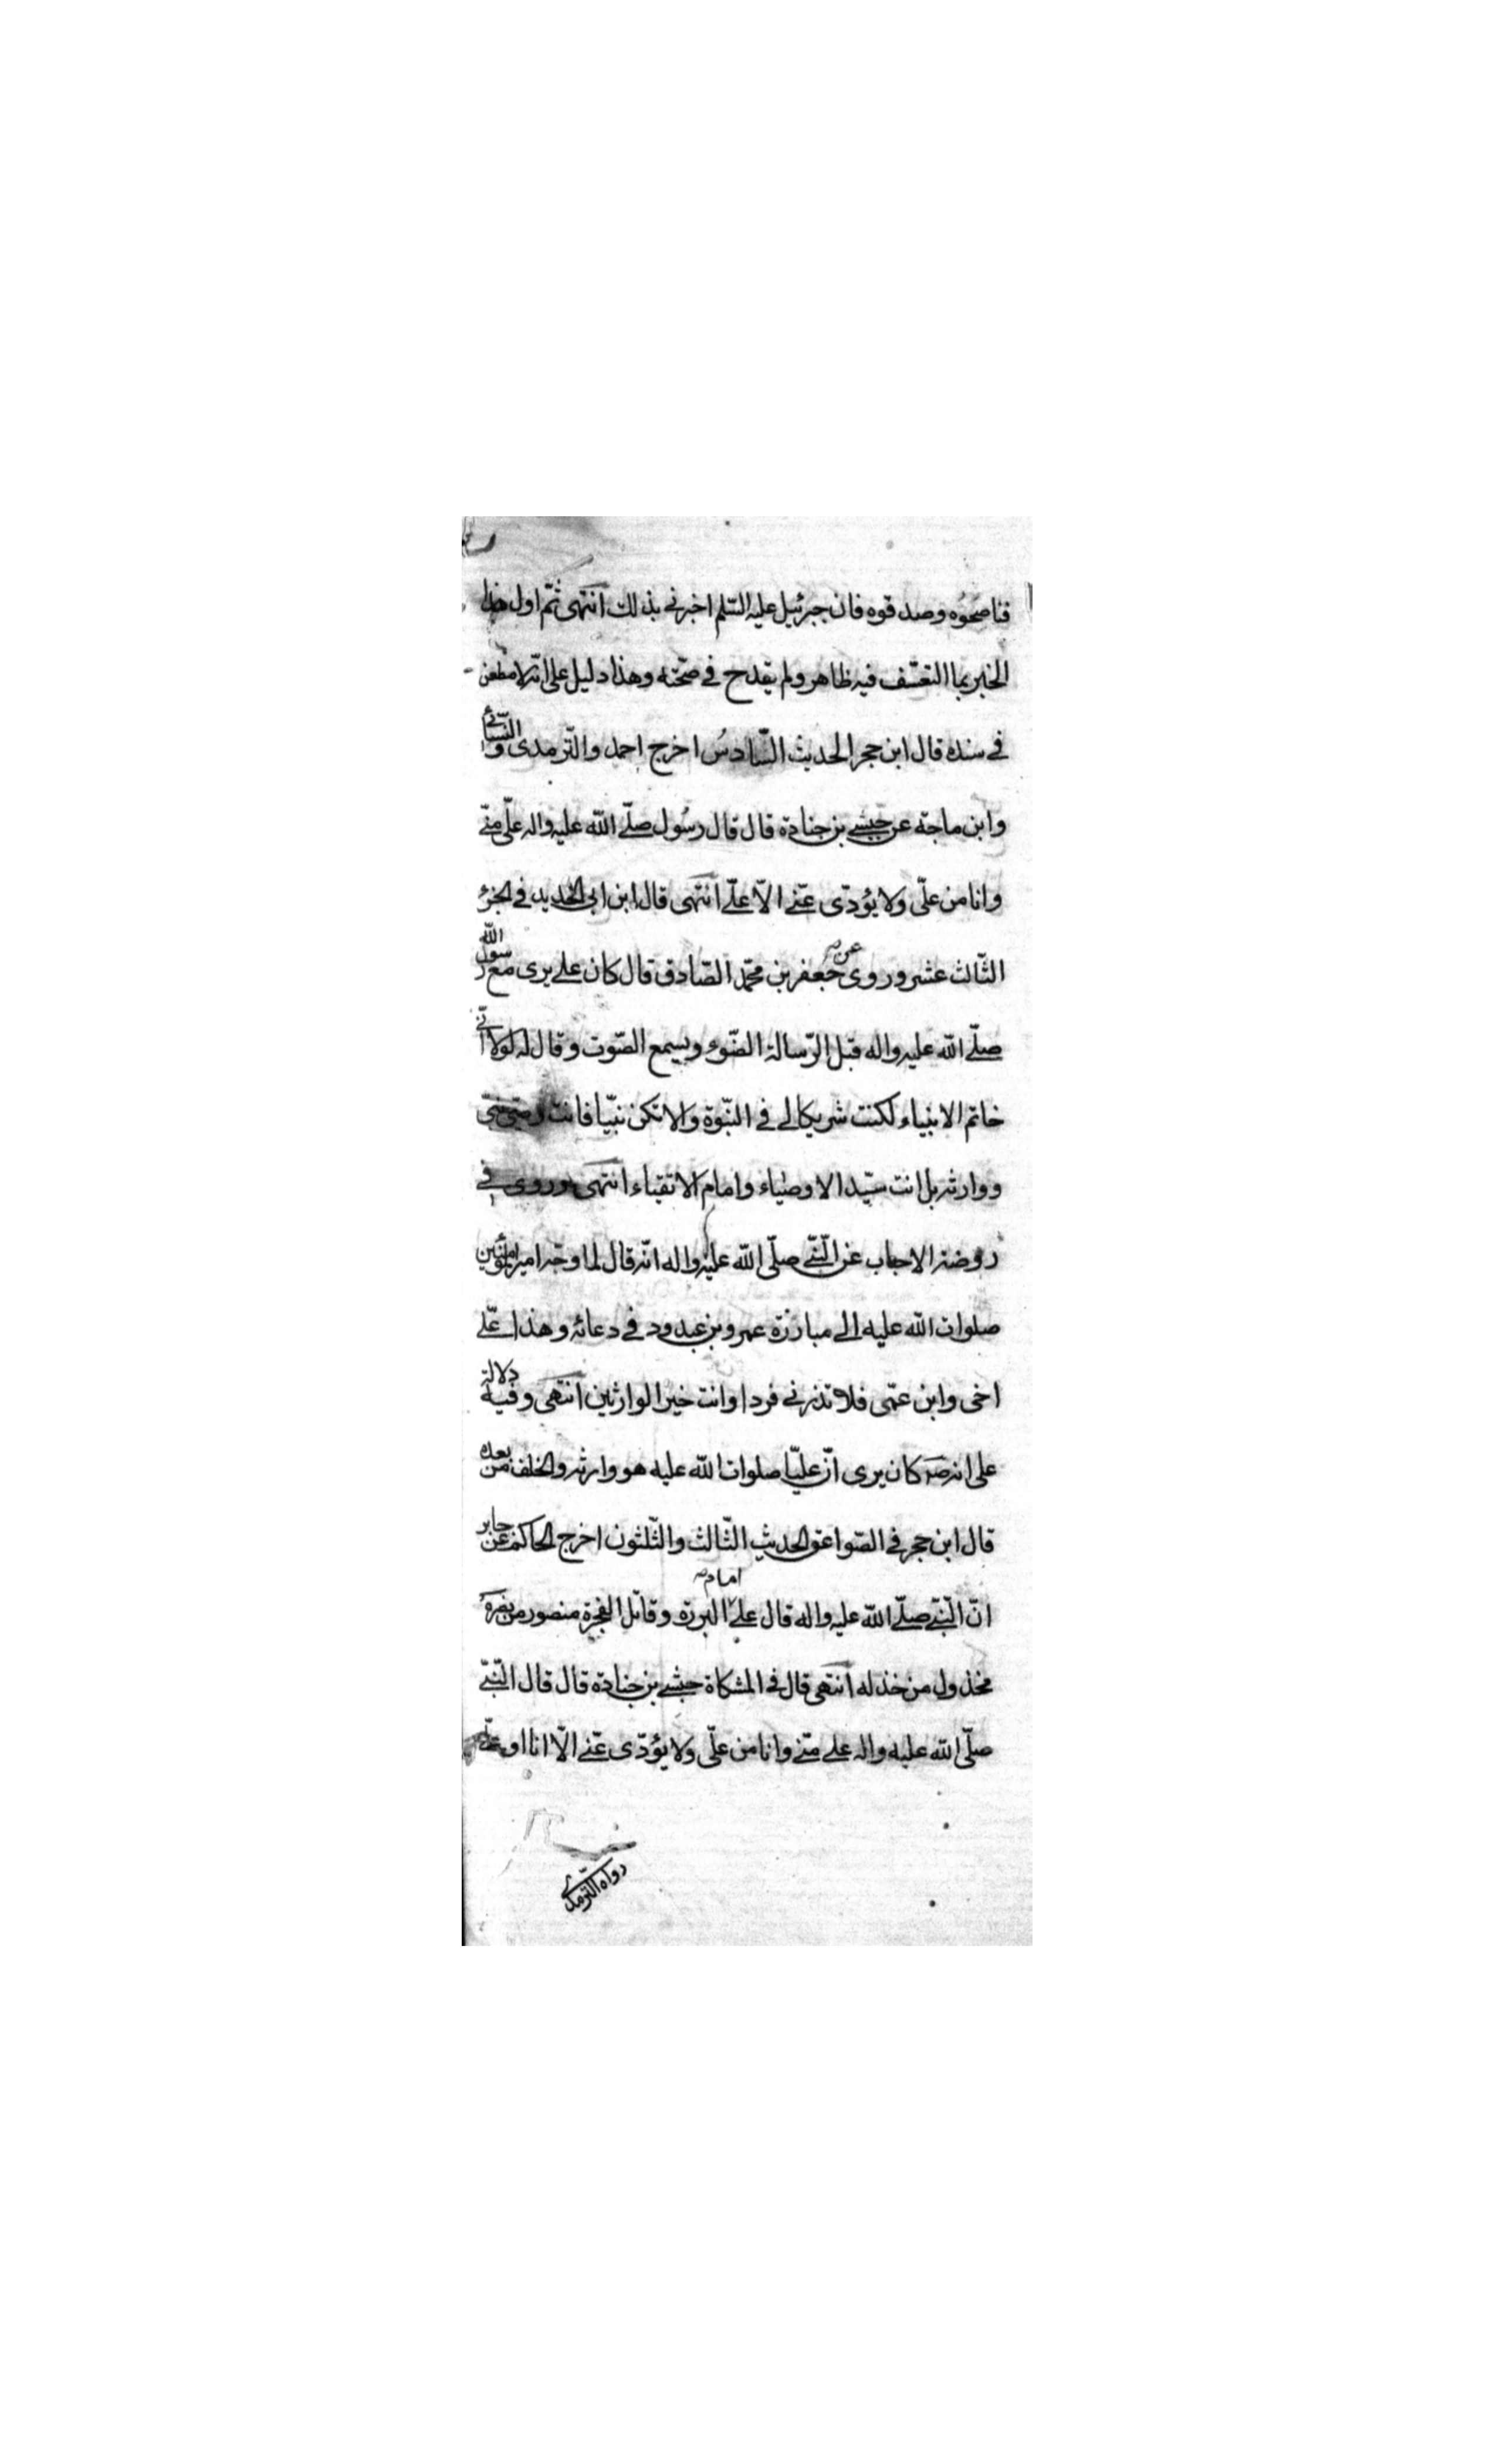 فناصحوه وصدقوه فان جبرئيل عليه السّلم اخبرني بذلك انتهى ثمّ اول هذا
الخبر بما التعسّف فيه ظاهر ولم يقدح في صحّته وهذا دليل على انّه لا مطعن
في سنده قال ابن حجر الحديث السّادسُ اخرج احمد والتّرمدى والنّسائي
وابن ماجة عن حبشي بن جنادة قال قال رسُول صلّى اللّه عليه واله علّى منّي
وانا من علّى ولا يؤدّى عنّي الاّ علّي انتهى قال ابن ابي الحديد في الجزؤ
الثّالث عشر وروى عن جعفر بن محمّد الصّادق قال كان علي يرى مع رسول اللّه
صلّى اللّه عليه واله قبل الرّسالة الضّوء ويسمع الصّوت وقال له لولا انّي
خاتم الانبياء لكنت شريكا لي في النبّوة والا تكن نبيّا فانت وصيّ نبى
ووارثه بل انت سيّد الاوصياء وامام الاتقياء انتهى وروى في
روضة الاحباب عن النّبّي صلّى اللّه عليه واله انّه قال لما وجّه امير المؤمنين
صلوات اللّه عليه الى مبارزة عمرو بن عبدود في دعائه وهذا علّي
اخى وابن عمّى فلا تذرني فردا وانت خير الوارثين انتهى وفيه دلالة
على انه صه كان يرى انّ عليّا صلوات اللّه عليه هو وارثه والخلف من بعده
قال ابن حجر في الصّواعق الحديث الثّالث والثّلثون اخرج الحاكم عن جابر
انّ النّبّي صلّى اللّه عليه واله قال علي امام البررة وقاتل الفجرة منصور من نصره
مخذول من خذله انتهى قال في المشكاة حبشي بن جنادة قال قال النّبّي
صلّى اللّه عليه واله علي منّي وانا من علّى ولا يؤدّى عنّي الاّ انا او علّي
رواه التّرمدي